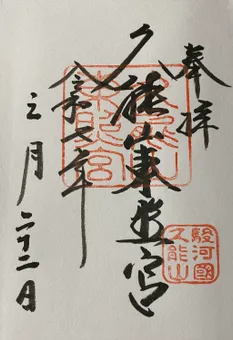 奉拝
久能山東照宮
令和七年
三月二十二日
東照宮
久能山
駿河國
久能山